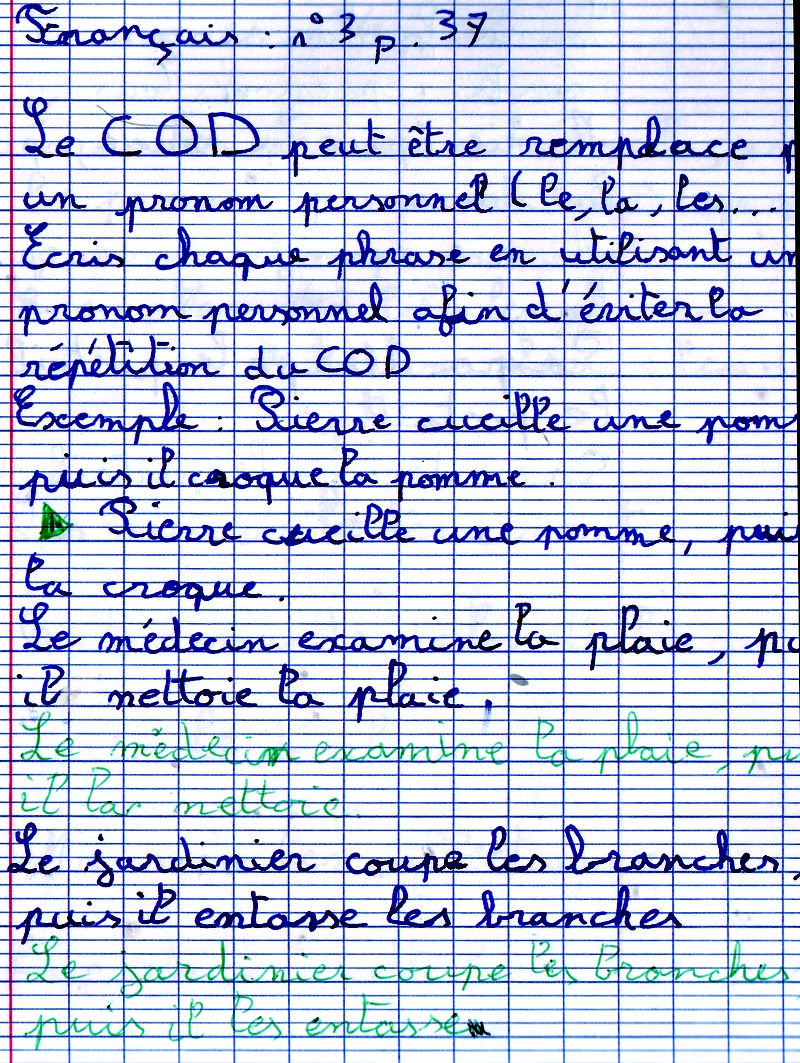 Français : n° 3 p. 37
Le COD peut être remplace p
un pronom personnel (le, la, les...
Écris chaque phrase en utilisant un
pronom personnel afin d'éviter la
répétition du COD
Exemple : Pierre cueille une pom
puis il croque la pomme .
Pierre cueille une pomme, puis
la croque .
Le médecin examine la plaie, pu
il nettoie la plaie .
Le médecin examine la plaie, pu
il la nettoie.
Le jardinier coupe les branches,
puis il entasse les branches
Le jardinier coupe les branches
puis il les entasse